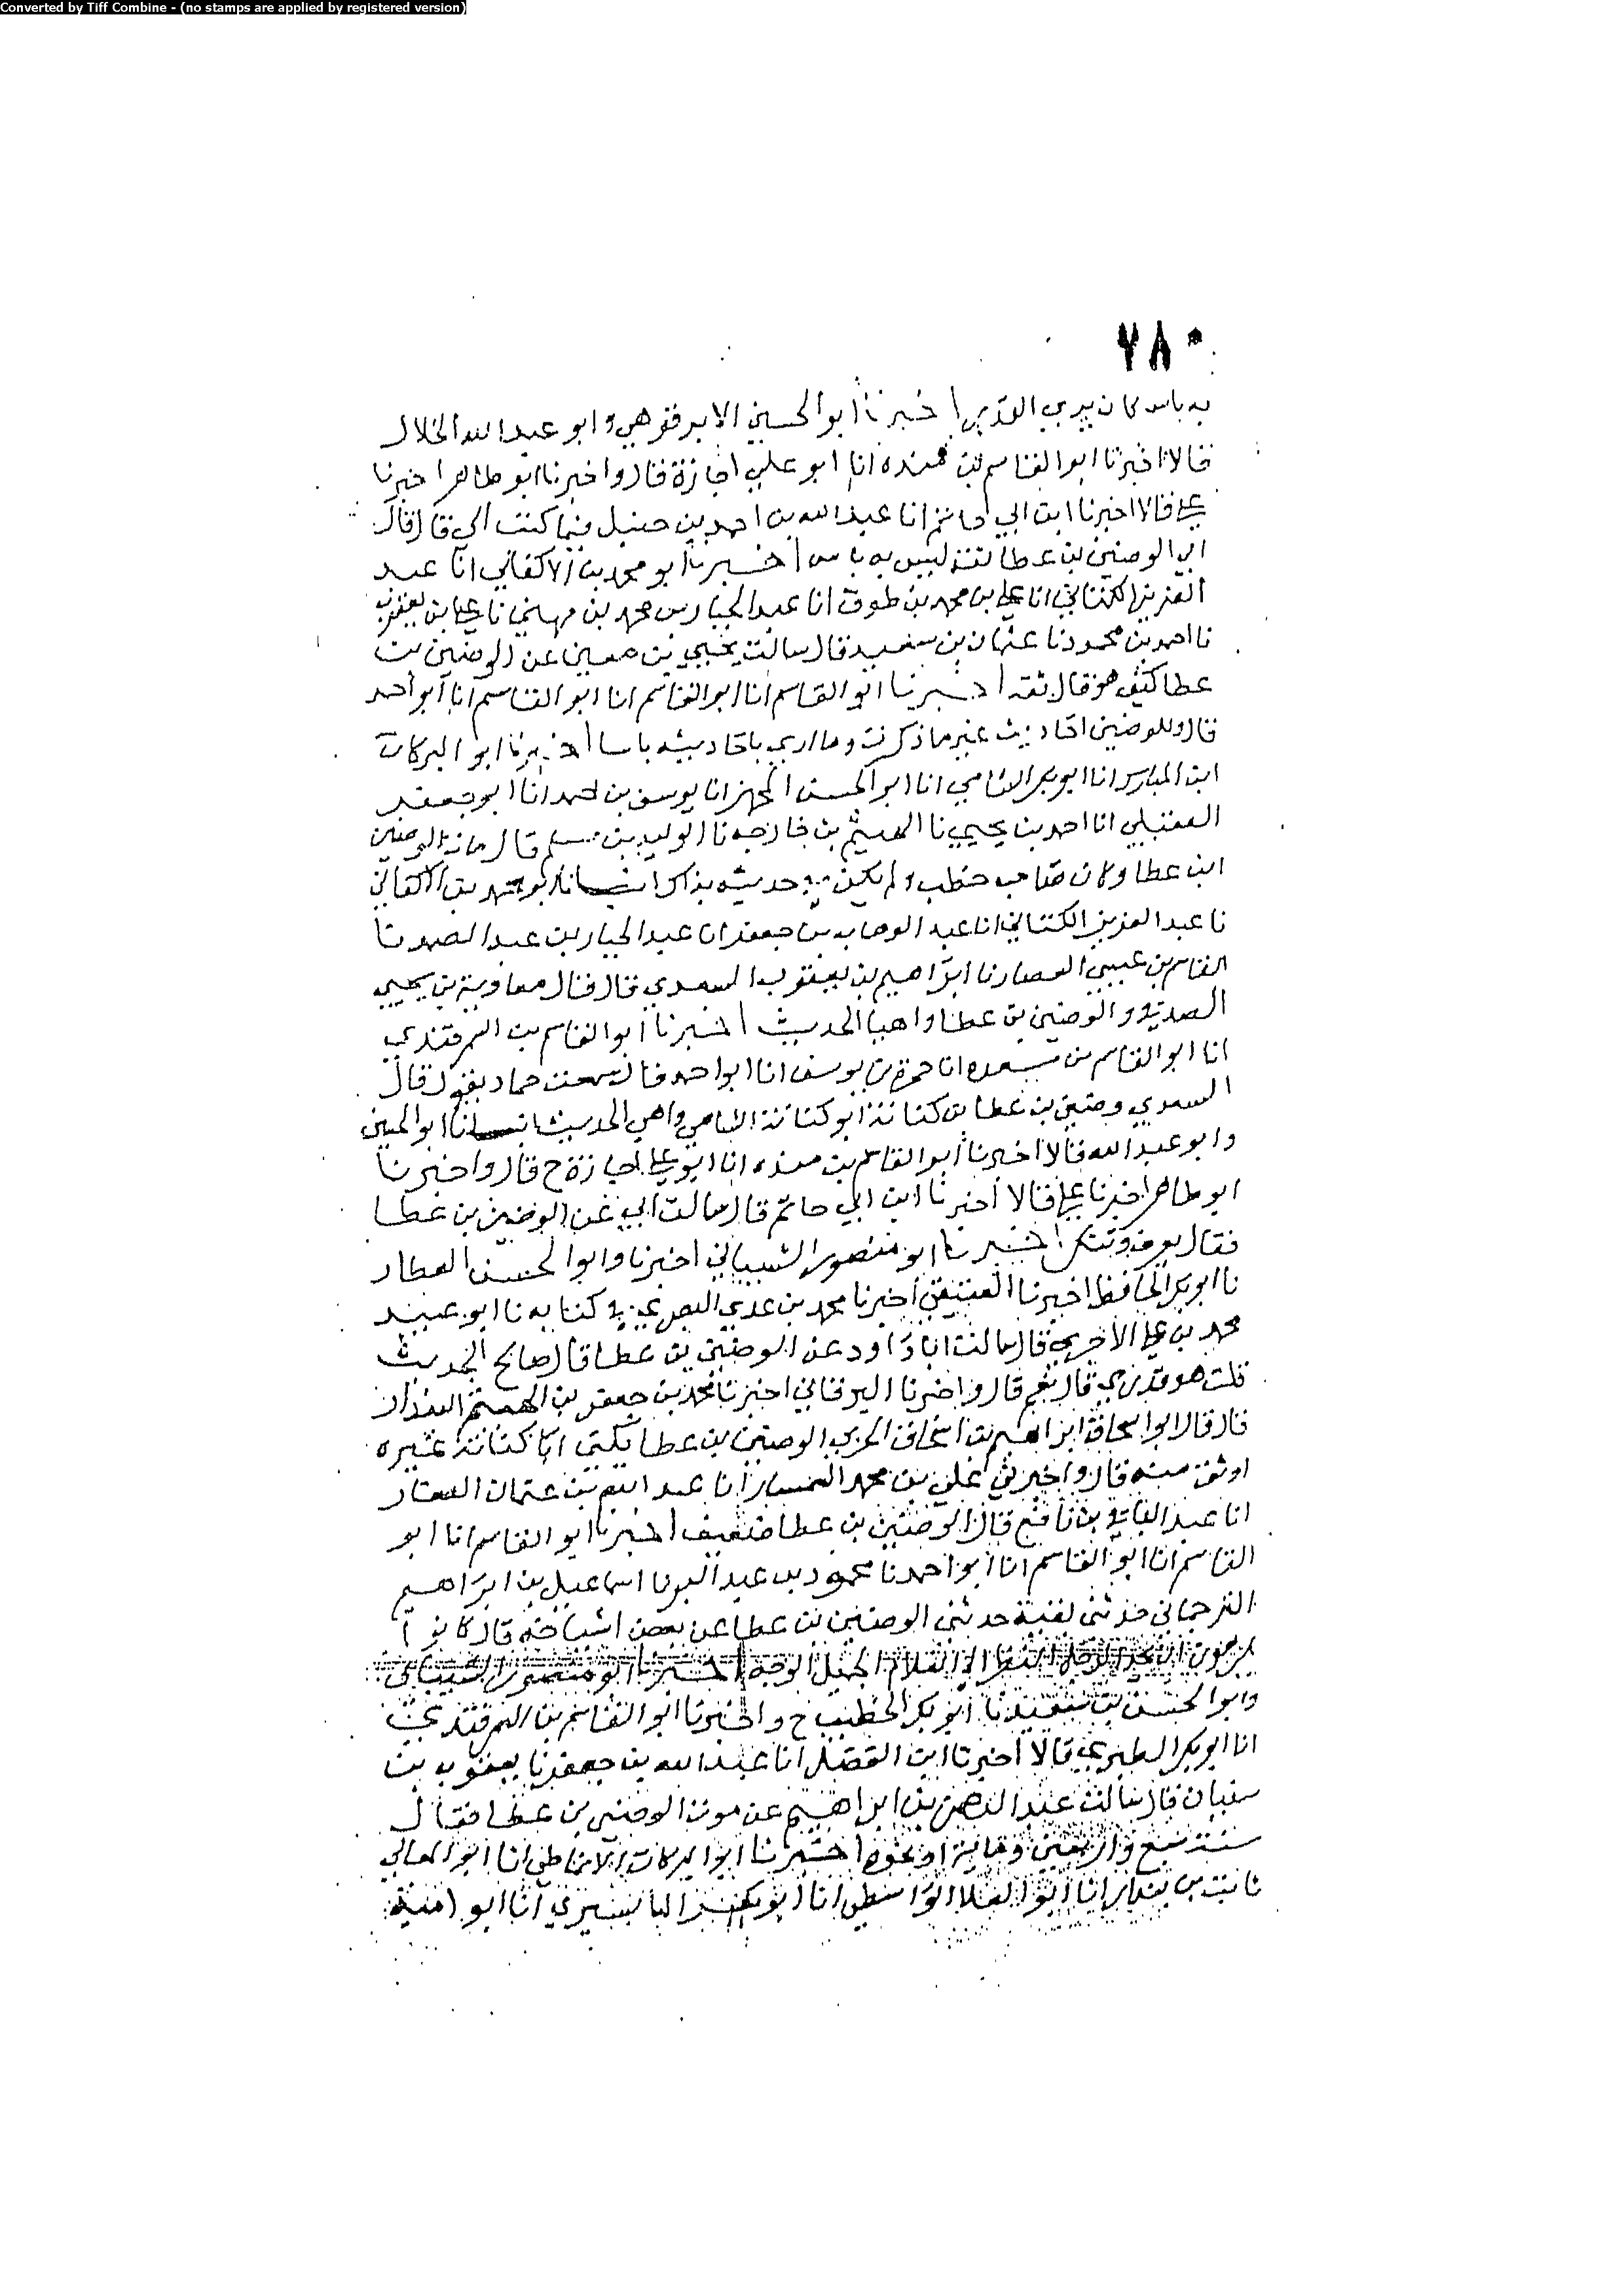 Converted by Tiff Combine - (no stamps are applied by registered version)
٧٨٠
به باس كان يري القدر اخبرنا ابو الحسين الابرقوهي وابو عبد الله الخلال
قالا اخبرنا ابو القاسم بن منده انا ابو علي اجازة قال واخبرنا ابو طاهر اخبرنا
علي قالا اخبرنا ابن ابي حاتم انا عبد الله بن احمد بن حنبل فيما كتب الي قال قال
ابي الوضين بن عطا ثقة ليس به باس اخبرنا ابو محمد بن الاكفاني انا عبد
العزيز الكتاني انا علي بن محمد بن طوق انا عبد الجبار بن محمد بن مهني نا علي بن يعقوب
نا احمد بن محمود نا عثمان بن سعيد قال سالت يحيي بن معين عن الوضين بن
عطا كيف هو قال ثقه اخبرنا ابو القاسم انا ابو القاسم انا ابو القاسم انا ابو احمد
قال وللوضين احاديث غير ما ذكرت وما اري باحاديثه باسا اخبرنا ابو البركات
ابن المبارك انا ابو بكر الشامي انا ابو الحسن المجهز انا يوسف بن احمد انا ابو جعفر
العقيلي انا احمد بن يحيي نا الهيثم بن خارجه نا الوليد بن مسلم قال الوضين
ابن عطا وكان صاحب خطب ولم يكن في حديثه بذاك انبانا ابو محمد بن الاكفاني
نا عبد العزيز الكتاني انا عبد الوهاب بن جعفر انا عبد الجبار بن عبد الصمد نا
القاسم بن عيسي العصار نا ابراهيم بن يعقوب السعدي قال قال معاوية بن يحيي
الصدفي والوضين بن عطا واهيا الحديث اخبرنا ابو القاسم بن السمرقندي
انا ابو القاسم بن مسعده انا حمزة بن يوسف انا ابو احمد قال سمعت حماد يقول قال
السعدي وضين بن عطا بن كنانة ابو كنانة الشامي واهي الحديث انبانا ابو الحسين
وابو عبد الله قالا اخبرنا ابو القاسم بن منده انا ابو علي اجازة ح قال واخبرنا
ابو طاهر اخبرنا علي قالا اخبرنا ابن ابي حاتم قال سالت ابي عن الوضين بن عطا
فقال يعرف وينكر اخبرنا ابو منصور الشيباني اخبرنا وابو الحسن العطار
نا ابو بكر الحافظ اخبرنا العتيقي اخبرنا محمد بن عدي البصري في كتابه نا ابو عبيد
محمد بن علي الاجري قال سالت ابا داود عن الوضين بن عطا قال صالح الحديث
قلت هو قدري قال نعم قال واخبرنا البرقاني اخبرنا محمد بن جعفر بن الهيثم البندار
قال قال ابو اسحاق ابراهيم بن اسحاق الحربي الوضين بن عطا يكني ابا كنانة غيره
اوثق منه قال واخبرني علي بن محمد السمسار انا عبد الله بن عثمان الصفار
انا عبد الباقي بن نافع قال الوضين بن عطا ضعيف اخبرنا ابو القاسم انا ابو
القاسم انا ابو القاسم انا ابو احمد نا محمود بن عبد البر نا اسماعيل بن ابراهيم
الترجماني حدثني بقية حدثني الوضين بن عطا عن بعض اشياخه قال كانوا
يكرهون ان يحد الرجل النظر الي الغلام الجميل الوجه اخبرنا ابو منصور الشيباني
وابو الحسن بن سعيد نا ابو بكر الخطيب ح واخبرنا ابو القاسم بن السمرقندي
انا ابو بكر الطبري قالا اخبرنا ابن الفضل انا عبد الله بن جعفر نا يعقوب بن
سفيان قال سالت عبد الرحمن بن ابراهيم عن موت الوضين بن عطا فقال
سنة سبع واربعين ومايه او نحوه اخبرنا ابو البركات الانماطي انا ابو المعالي
ثابت بن بندار انا ابو العلا الواسطي انا ابو بكر البابسيري انا ابو امية